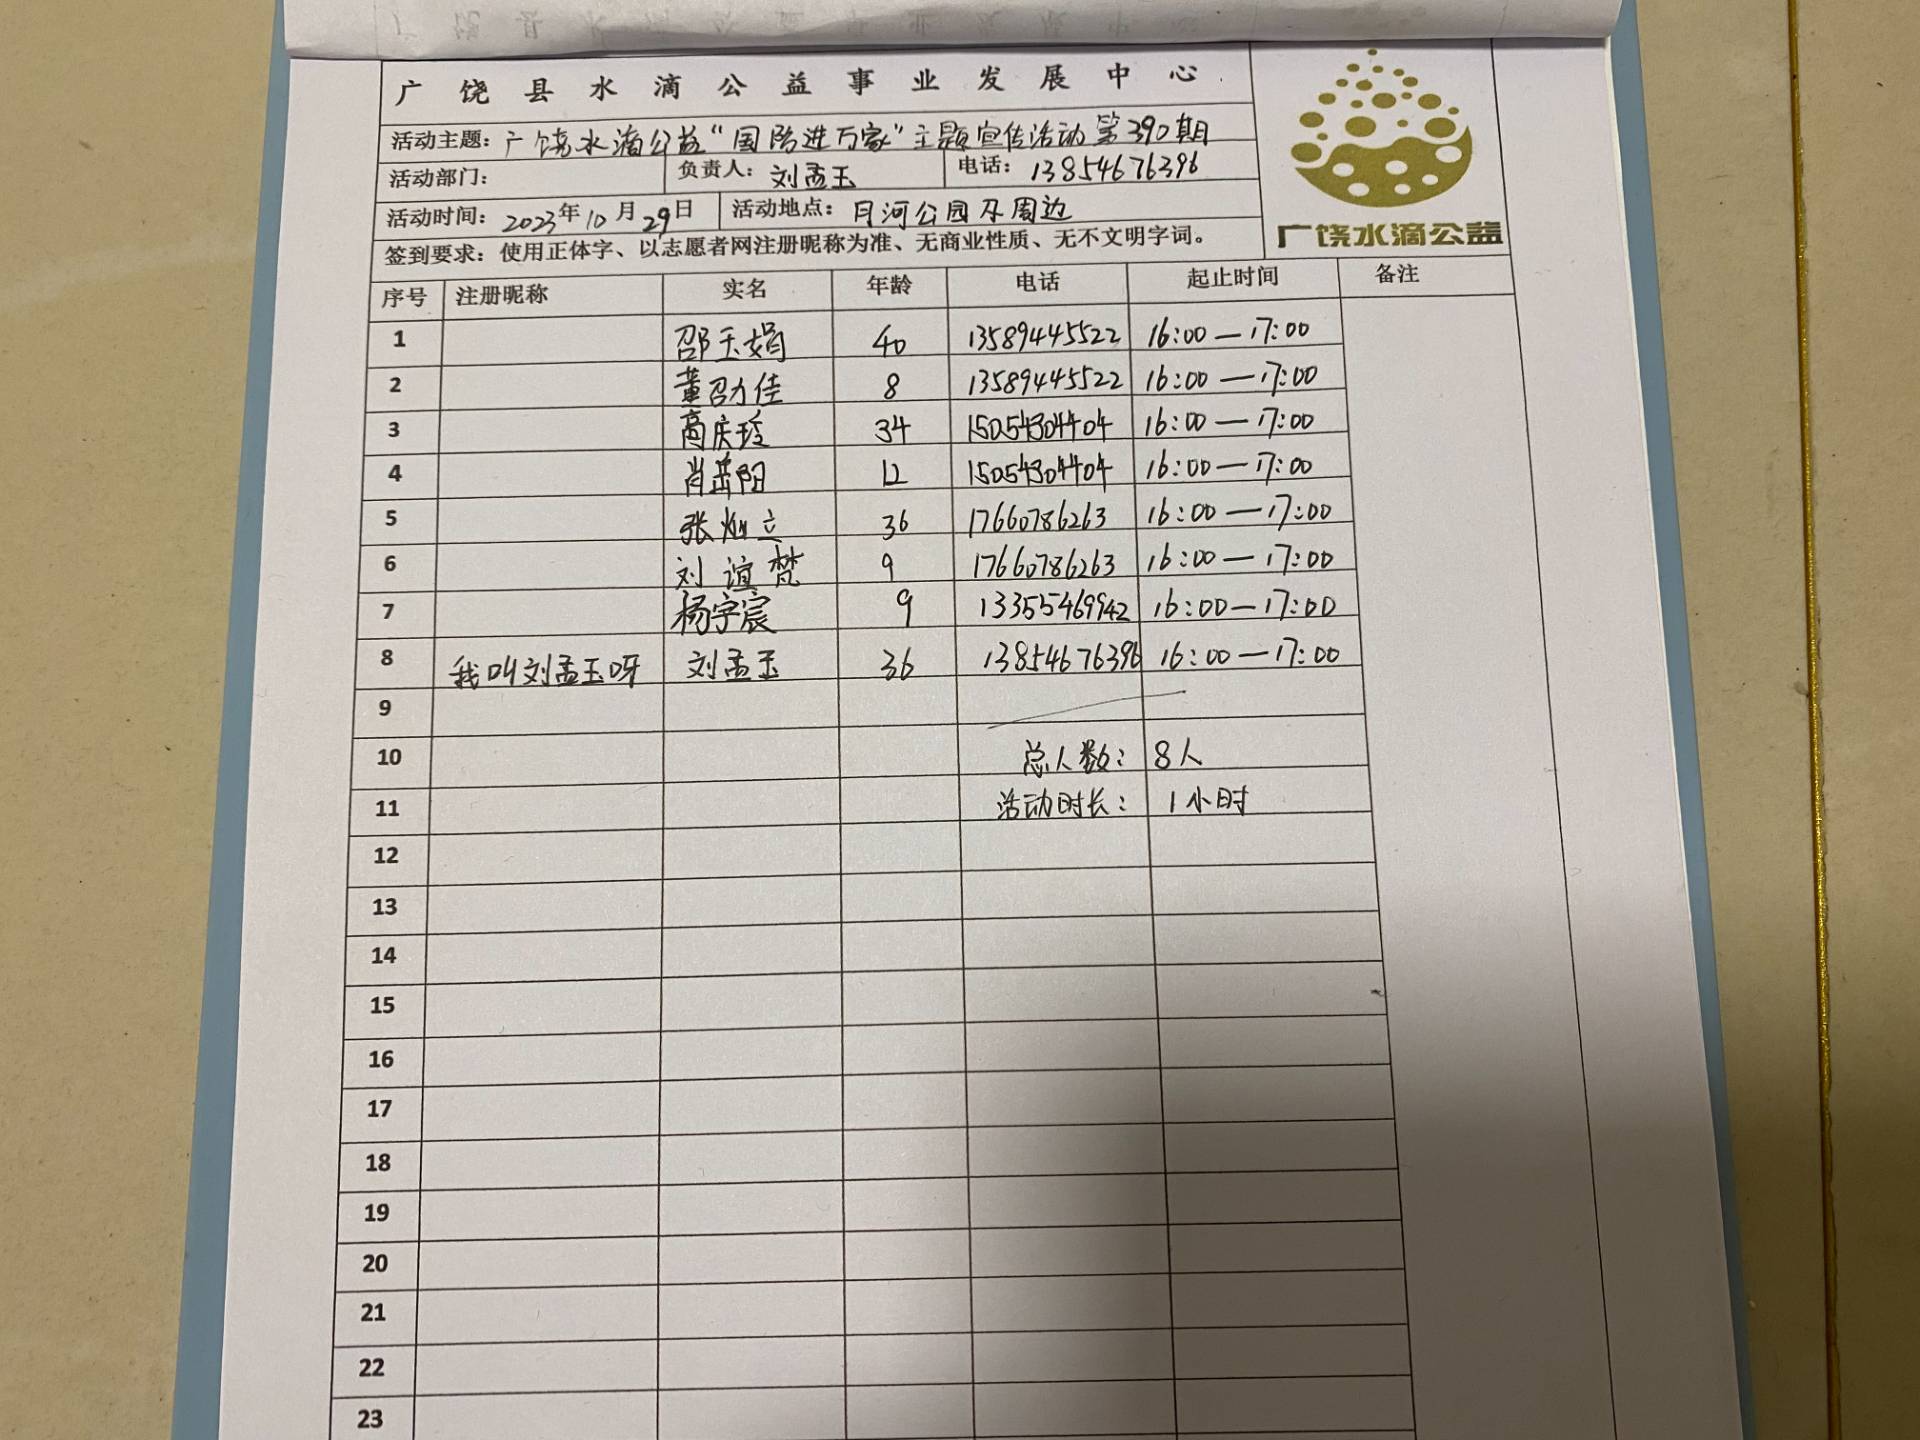 广饶县水滴公益事业发展中心
活动主题：广饶水滴公益“国防进万家”主题宣传活动第390期
活动部门： 负责人：刘孟玉 电话：13854676396
活动时间：2023年10月29日 活动地点：月河公园及周边
广饶水滴公益
签到要求：使用正体字、以志愿者网注册昵称为准、无商业性质、无不文明字词。
序号 注册昵称 实名 年龄 电话 起止时间 备注
1 邵玉娟 40 13589445522 16:00—17:00
2 董邵佳 8 13589445522 16:00—17:00
3 高庆玲 34 15054304404 16:00—17:00
4 肖岳阳 12 15054304404 16:00—17:00
5 张灿立 36 17660786263 16:00—17:00
6 刘谊梵 9 17660786263 16:00—17:00
7 杨宇宸 9 13355469942 16:00—17:00
8 我叫刘孟玉呀 刘孟玉 36 13854676396 16:00—17:00
9
10 总人数： 8人
11 活动时长： 1小时
12
13
14
15
16
17
18
19
20
21
22
23